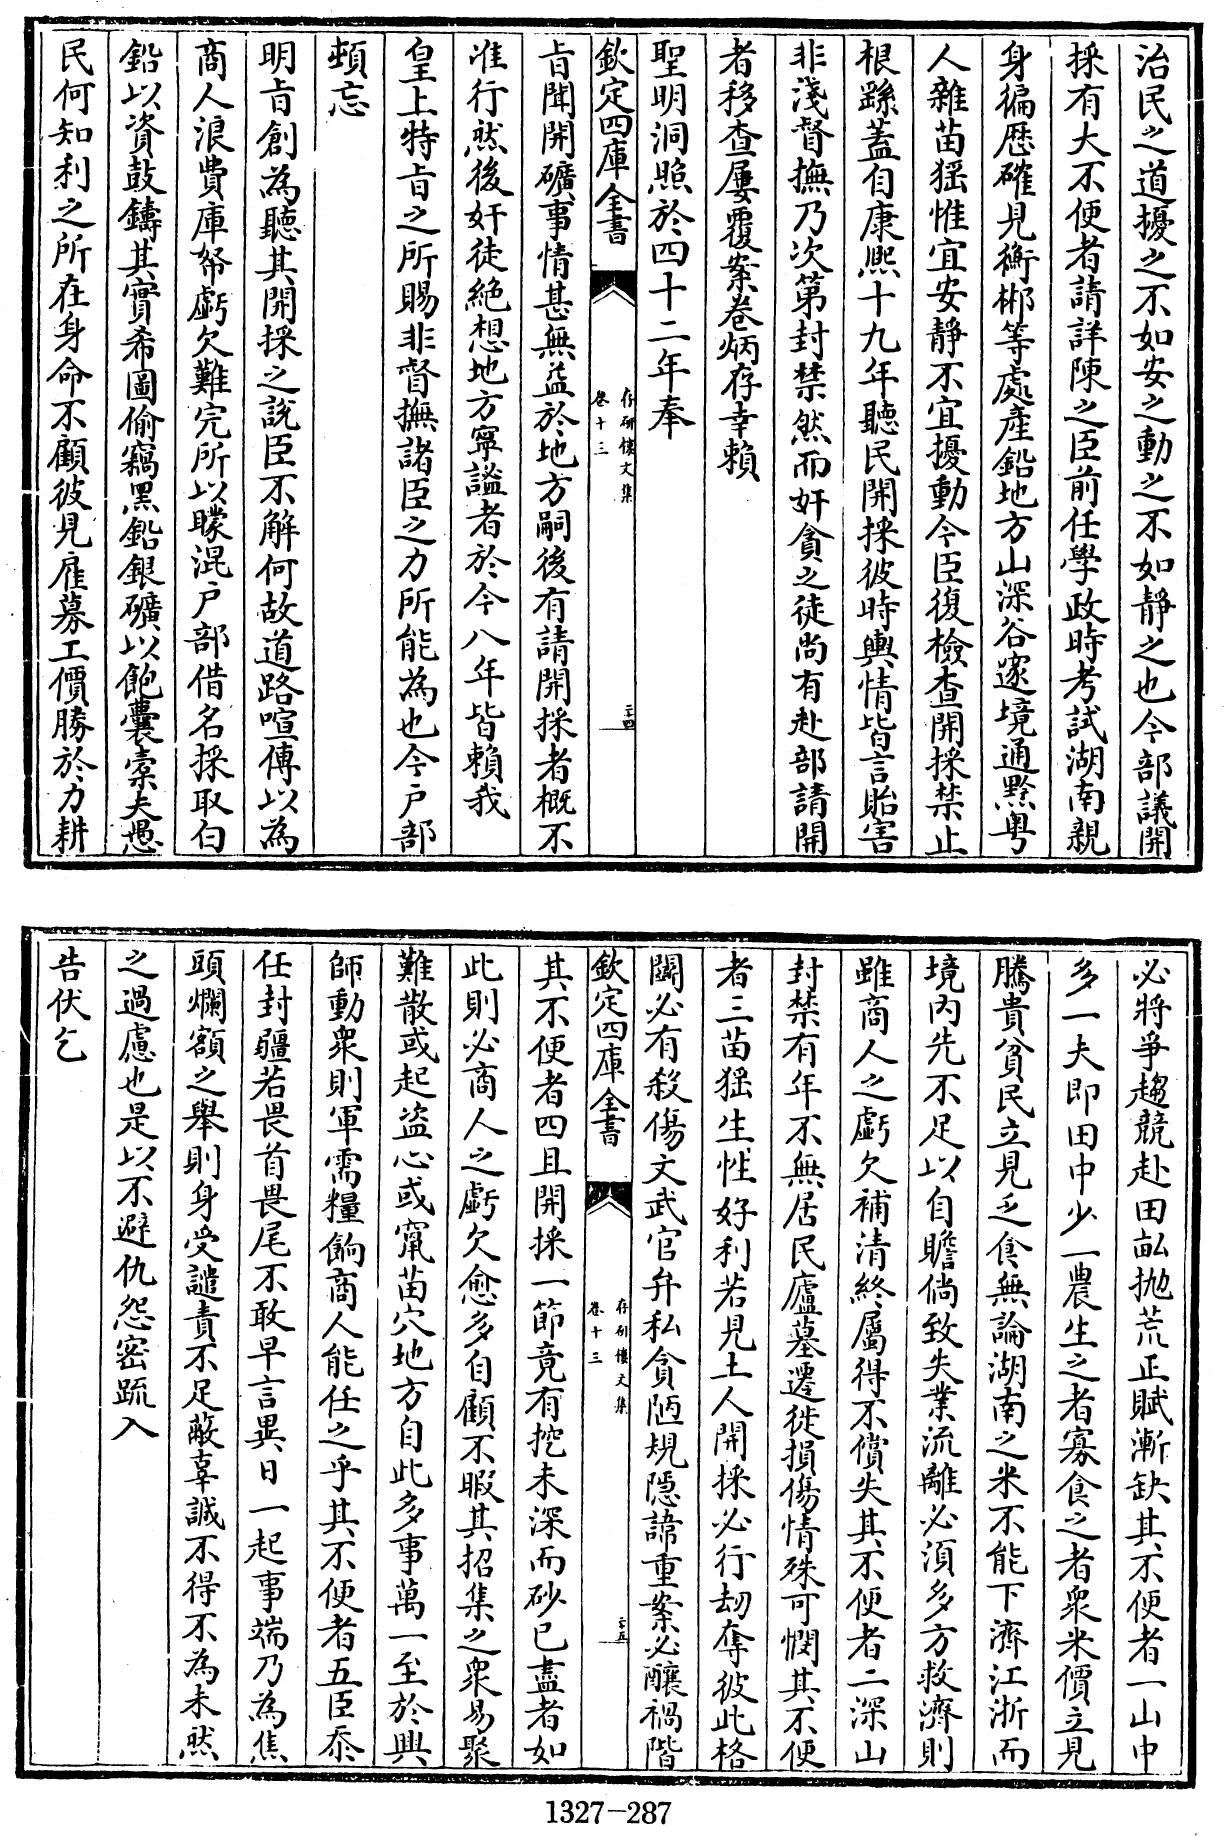 治民之道擾之不如安之動之不如靜之也今部議開
採有大不便者請詳陳之臣前任學政時考試湖南親
身徧歴確見衡郴等處產鉛地方山深谷邃境通黔粵
人雜苗猺惟宜安靜不宜擾動今臣復檢查開採禁止
根繇蓋自康熙十九年聽民開採彼時輿情皆言貽害
非淺督撫乃次第封禁然而奸貪之徒尚有赴部請開
者移查屢覆案卷炳存幸賴
聖明洞照於四十二年奉
欽定四庫全書
存研樓文集
卷十三
二十四
㫖聞開礦事情甚無益於地方嗣後有請開採者概不
准行然後奸徒絶想地方寧謐者於今八年皆賴我
皇上特㫖之所賜非督撫諸臣之力所能為也今户部
頓忘
明㫖創為聽其開採之說臣不解何故道路喧傳以為
商人浪費庫帑虧欠難完所以矇混户部借名採取白
鉛以資鼓鑄其實希圖偷竊黑鉛銀礦以飽囊橐夫愚
民何知利之所在身命不顧彼見雇募工價勝於力耕
必將爭趨競赴田畝拋荒正賦漸缺其不便者一山中
多一夫即田中少一農生之者寡食之者衆米價立見
騰貴貧民立見乏食無論湖南之米不能下濟江浙而
境内先不足以自贍倘致失業流離必須多方救濟則
雖商人之虧欠補清終屬得不償失其不便者二深山
封禁有年不無居民廬墓遷徙損傷情殊可憫其不便
者三苗猺生性好利若見土人開採必行刼奪彼此格
鬭必有殺傷文武官弁私貪陋規隱諱重案必釀禍階
欽定四庫全書
存研樓文集
卷十三
二十五
其不便者四且開採一節竟有挖未深而砂已盡者如
此則必商人之虧欠愈多自顧不暇其招集之衆易聚
難散或起盜心或竄苗穴地方自此多事萬一至於興
師動衆則軍需糧餉商人能任之乎其不便者五臣忝
任封疆若畏首畏尾不敢早言異日一起事端乃為焦
頭爛額之舉則身受譴責不足蔽辜誠不得不為未然
之過慮也是以不避仇怨密疏入
告伏乞
1327-287